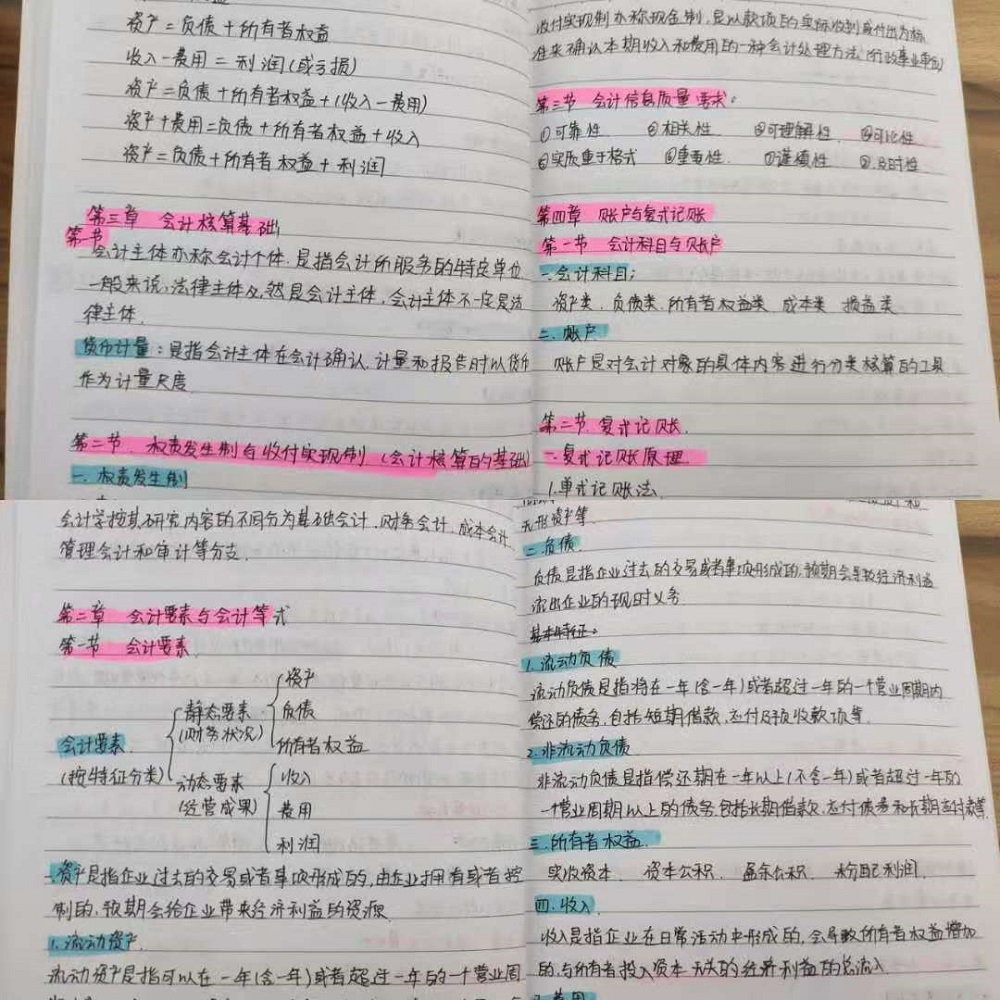 资产=负债+所有者权益
收入-费用=利润(或亏损)
资产=负债+所有者权益+(收入-费用)
资产+费用=负债+所有者权益+收入
资产=负债+所有者权益+利润
第三章 会计核算基础
第一节
会计主体亦称会计个体,是指会计所服务的特定单位
一般来说,法律主体必然是会计主体,会计主体不一定是法
律主体.
货币计量:是指会计主体在会计确认.计量和报告时以货币
作为计量尺度
第二节.权责发生制与收付实现制(会计核算的基础)
一.权责发生制
收付实现制亦称现金制,是以款项的实际收到或付出为标
准来确认本期收入和费用的一种会计处理方法(行政事业单位)
第三节 会计信息质量要求。
①可靠性 ②相关性 ③可理解性 ④可比性
⑤实质重于形式 ⑥重要性 ⑦谨慎性 ⑧及时性
第四章 账户与复式记账
第一节 会计科目与账户
一.会计科目;
资产类.负债类.所有者权益类 成本类 损益类
二.账户
账户是对会计对象的具体内容进行分类核算的工具
第二节.复式记账.
一.复式记账原理.
1.单式记账法.
会计学按其研究内容的不同分为基础会计.财务会计.成本会计
管理会计和审计等分支.
第二章 会计要素与会计等式
第一节 会计要素
会计要素.
(按特征分类)
静态要素
(财务状况)
资产
负债
所有者权益
动态要素
(经营成果)
收入
费用
利润
一.资产是指企业过去的交易或者事项形成的,由企业拥有或者控
制的.预期会给企业带来经济利益的资源
1.流动资产.
流动资产是指可以在一年(含一年)或者超过一年的一个营业周
无形资产等.
二.负债.
负债是指企业过去的交易或者事项形成的,预期会导致经济利益
流出企业的现时义务
基本特征。
1.流动负债
流动负债是指将在一年(含一年)或者超过一年的一个营业周期内
偿还的债务,包括短期借款,应付及预收款项等.
2.非流动负债
非流动负债是指偿还期在一年以上(不含一年)或者超过一年的
一个营业周期以上的债务.包括长期借款.应付债券和长期应付款等.
三.所有者权益.
实收资本. 资本公积. 盈余公积. 未分配利润.
四.收入.
收入是指企业在日常活动中形成的,会导致所有者权益增加
的.与所有者投入资本无关的经济利益的总流入